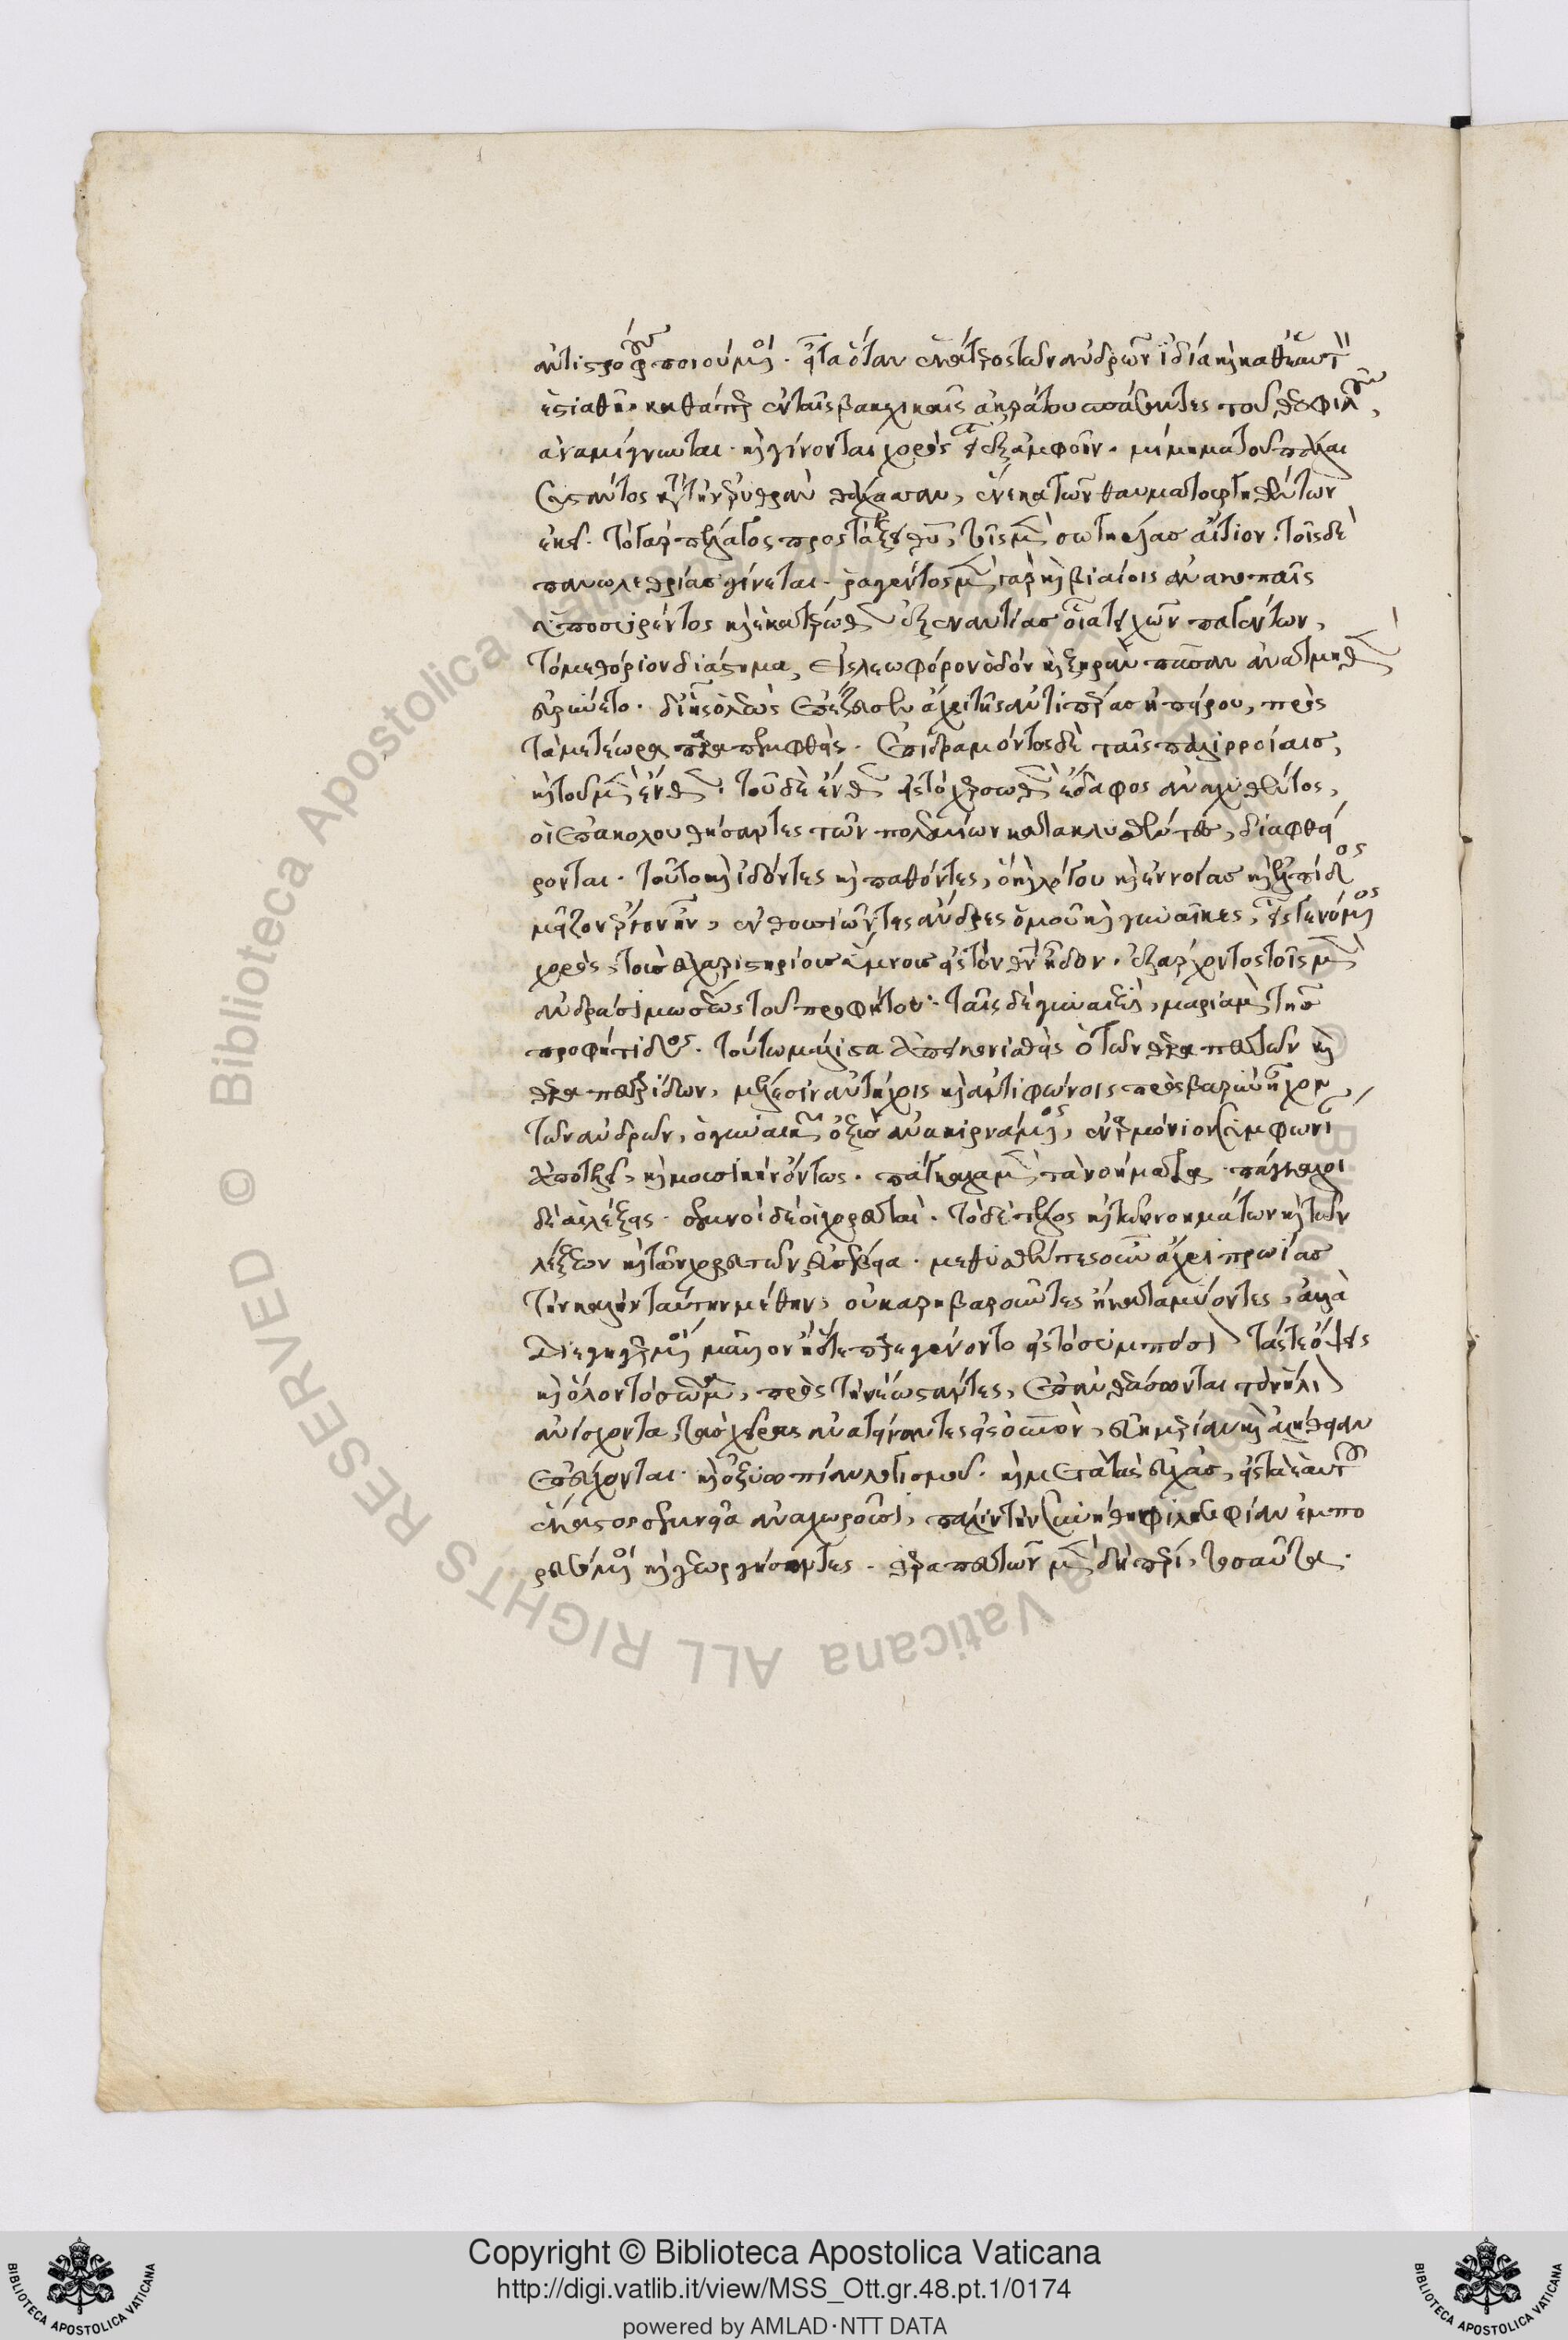 ἀντιστρόφους ποιούμενοι. εἶτα ὅταν ἑκάτερος τῶν ἀνδρῶν ἰδία καὶ καθ' ἑαυτὸν
ἑστιαθῆ. καθάπερ ἐν ταῖς βακχικαῖς ἀκράτου σπάσαντες τοῦ θεοφιλοῦς,
ἀναμίγνυνται. καὶ γίνονται χορὸς εἷς ἐξ ἀμφοῖν. μίμημα τοῦ πάλαι
συστάντος κατὰ τὴν ἐρυθρὰν θάλασσαν, ἕνεκα τῶν θαυματουργηθέντων
ἐκεῖ. τὸ γὰρ πέλαγος προστάξει θεοῦ, τοῖς μὲν σωτηρίας αἴτιον. τοῖς δὲ
πανωλεθρίας γίνεται. ῥαγέντος μὲν γὰρ καὶ βιαίοις ἀνακοπαῖς
ὑποσυρέντος καὶ ἑκατέρωθεν ἐξ ἐναντίας οἷα τειχῶν παγέντων,
τὸ μεθόριον διάστημα, εἰς λεωφόρον ὁδὸν καὶ ξηρὰν πᾶσαν ἀνατμηθὲν
εὐρύνετο. δι' ἧς ὁ λεὼς ἐπέζευσεν ἄχρι τῆς ἀντιπέρας ἠπείρου, πρὸς
τὰ μετέωρα παραπεμφθείς. ἐπιδραμόντος δὲ ταῖς παλιρροίαις,
καὶ τοῦ μὲν ἔνθεν. τοῦ δὲ ἔνθεν εἰς τὸ χερσωθὲν ἔδαφος ἀναχυθέντος,
οἱ ἐπακολουθήσαντες τῶν πολεμίων κατακλυσθέντες, διαφθεί
ρονται. τοῦτο καὶ ἰδόντες καὶ παθόντες, ὃ καὶ λόγου καὶ ἐννοίας καὶ ἐλπίδος
μεῖζον ἔργον ἦν, ἐνθουσιῶντες ἄνδρες ὁμοῦ καὶ γυναῖκες, εἷς γενόμενος
χορὸς, τοὺς εὐχαριστηρίους ὕμνους εἰς τὸν θεὸν ᾖδον. ἐξάρχοντος τοῖς μὲν
ἀνδράσι μωσέως τοῦ προφήτου. ταῖς δὲ γυναιξὶ, μαριὰμ τῆς
προφήτιδος. τούτω μάλιστα ἀπεικονισθεὶς ὁ τῶν θεραπευτῶν καὶ
θεραπευτρίδων, μέλεσιν ἀντήχοις καὶ ἀντιφώνοις πρὸς βαρὺν ἦχον
τῶν ἀνδρῶν, ὁ γυναικῶν ὀξὺς ἀνακιρνάμενος, ἐναρμόνιον συμφωνίαν
ἀποτελεῖ, καὶ μουσικὴν ὄντως. πάγκαλα μὲν τὰ νοήματα. πάγκαλοι
δὲ αἱ λέξεις. σεμνοὶ δὲ οἱ χορευταί. τὸ δὲ τέλος καὶ τῶν νοημάτων καὶ τῶν
λέξεων καὶ τῶν χορευτῶν, εὐσέβεια. μεθυσθέντες οὖν ἄχρι πρωίας
τὴν καλὴν ταύτην μέθην, οὐ καρηβαροῦντες ἢ καταμύοντες, ἀλλὰ
διεγηγερμένοι μᾶλλον ἢ ὅτε παρεγένοντο εἰς τὸ συμπόσιον τάς τε ὄψεις
καὶ ὅλον τὸ σῶμα, πρὸς τὴν ἕω στάντες, ἐπὰν θεάσωνται τὸν ἥλιον
ἀνίσχοντα, τὰς χεῖρας ἀνατείναντες εἰς οὐρανὸν, εὐημερίαν καὶ ἀλήθειαν
ἐπεύχονται. καὶ ὀξυωπίαν λογισμοῦ. καὶ μετὰ τὰς εὐχὰς, εἰς τὰ ἑαυτῶν
ἕκαστος σεμνεῖα ἀναχωροῦσι, πάλιν τὴν συνήθη φιλοσοφίαν ἐμπο
ρευσόμενοι καὶ γεωργήσοντες. θεραπευτῶν μὲν δὴ πέρι, τοσαῦτα.
Copyright © Biblioteca Apostolica Vaticana
http://digi.vatlib.it/view/MSS_Ott.gr.48.pt.1/0174
powered by AMLAD·NTT DATA